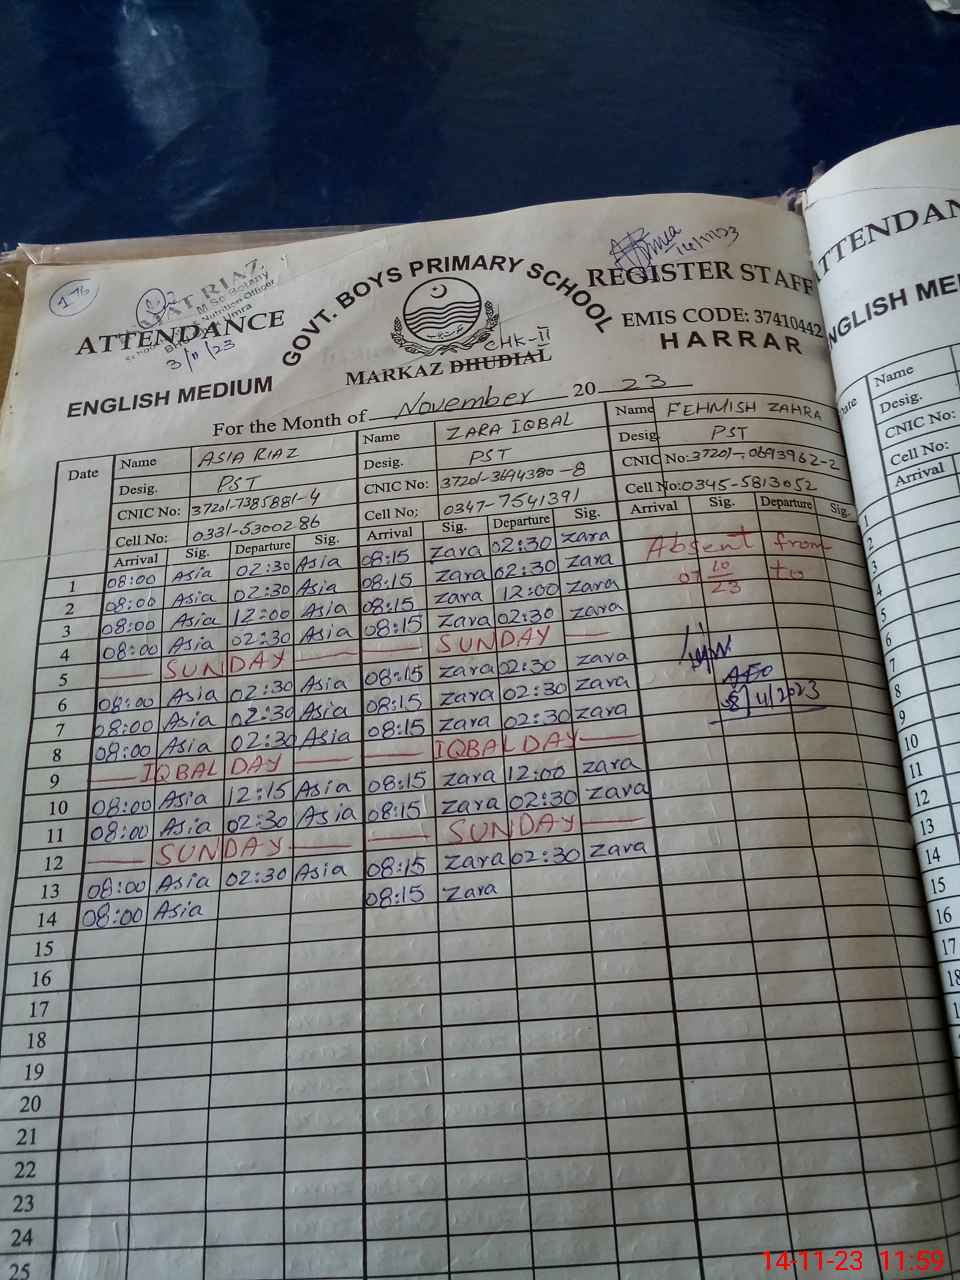 1-76
RIAZ
M.Sc Botany
Nutrition Officer
3/11/23
14/11/23
ATTENDANCE
GOVT. BOYS PRIMARY SCHOOL
REGISTER STAFF
CHK-II
EMIS CODE: 37410442
ENGLISH MEDIUM
MARKAZ DHUDIAL
HARRAR
For the Month of November 2023
Date Name ASIA RIAZ Name ZARA IQBAL Name FEHMISH ZAHRA
Desig. PST Desig. PST Desig. PST
CNIC No: 37201-7385881-4 CNIC No: 37201-3694380-8 CNIC No: 37201-0693962-2
Cell No: 0331-5300286 Cell No; 0347-7541391 Cell No: 0345-5813052
Arrival Sig. Departure Sig. Arrival Sig. Departure Sig. Arrival Sig. Departure Sig.
1 08:00 Asia 02:30 Asia 08:15 zara 02:30 zara Absent from
2 08:00 Asia 02:30 Asia 08:15 zara 02:30 zara 07 10/23 to
3 08:00 Asia 12:00 Asia 08:15 zara 12:00 zara
4 08:00 Asia 02:30 Asia 08:15 zara 02:30 zara
5 SUNDAY SUNDAY
6 08:00 Asia 02:30 Asia 08:15 zara 02:30 zara
7 08:00 Asia 02:30 Asia 08:15 zara 02:30 zara AEO
8 08:00 Asia 02:30 Asia 08:15 zara 02:30 zara 8/11/2023
9 IQBAL DAY IQBAL DAY
10 08:00 Asia 12:15 Asia 08:15 zara 12:00 zara
11 08:00 Asia 02:30 Asia 08:15 zara 02:30 zara
12 SUNDAY SUNDAY
13 08:00 Asia 02:30 Asia 08:15 zara 02:30 zara
14 08:00 Asia 08:15 zara
15
16
17
18
19
20
21
22
23
24
25
ATTENDAN
ENGLISH ME
Name
Desig.
CNIC No:
Cell No:
Arrival
1
2
3
4
5
6
7
8
9
10
11
12
13
14
15
16
17
18
14-11-23 11:59